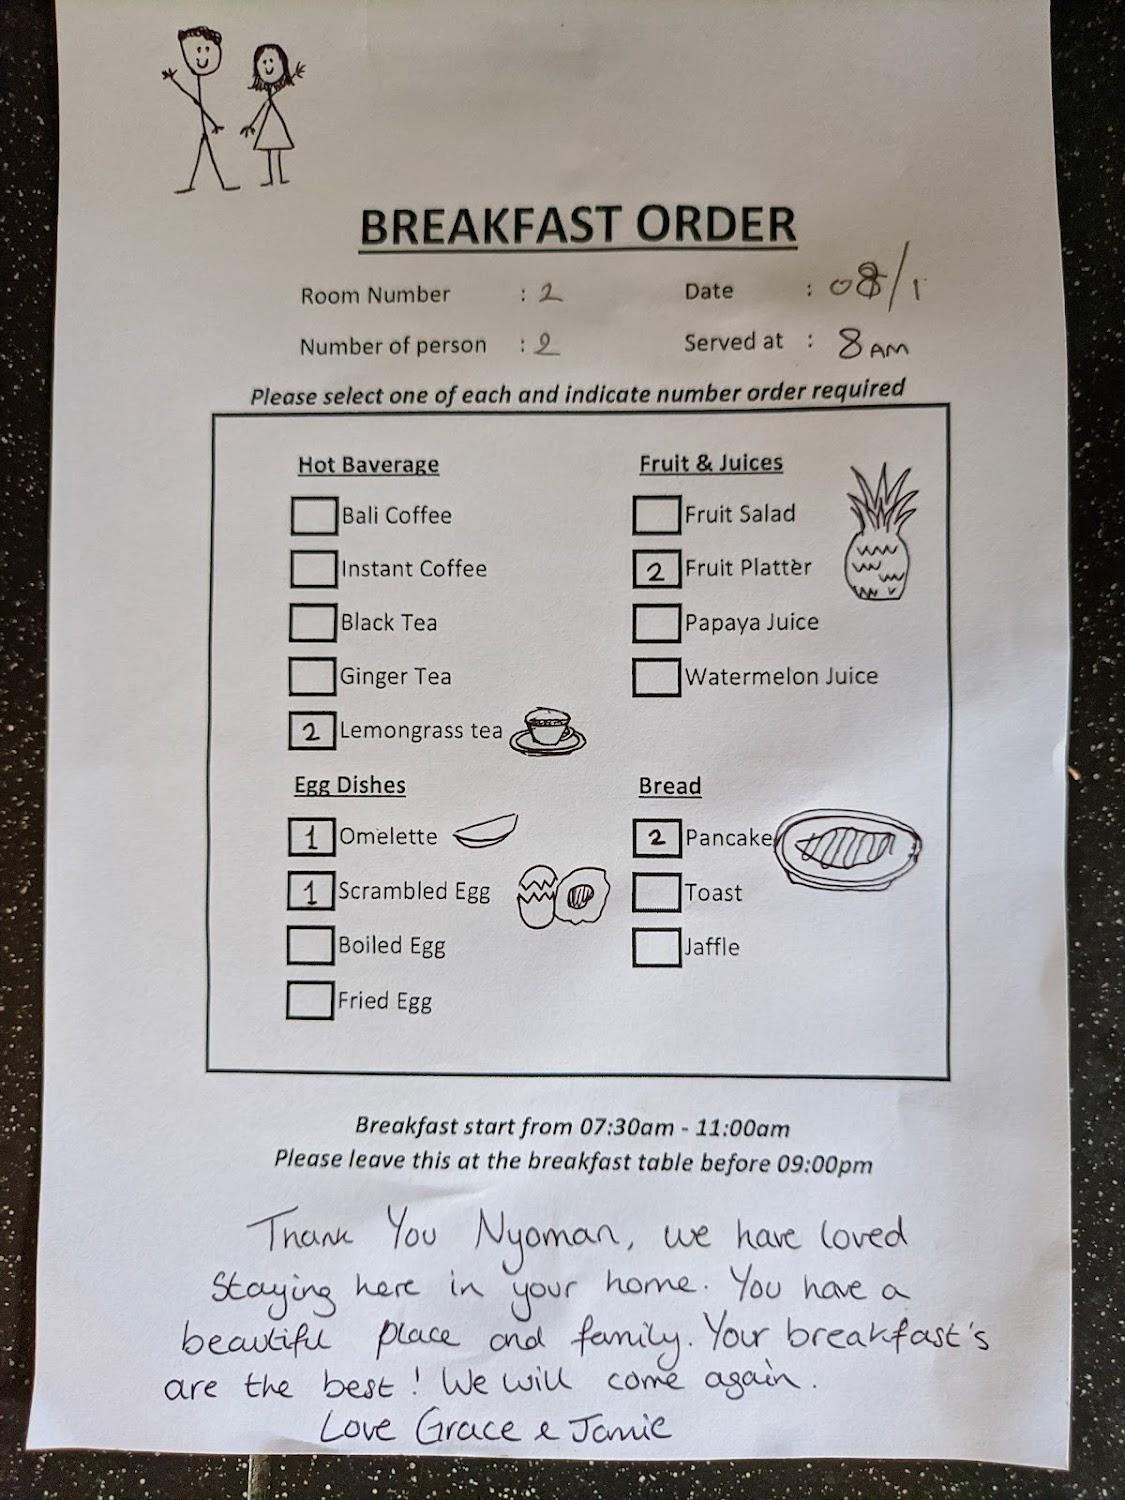 BREAKFAST ORDER
Room Number : 2 Date : 08/1
Number of person : 2 Served at : 8 AM
Please select one of each and indicate number order required
Hot Baverage
Bali Coffee
Instant Coffee
Black Tea
Ginger Tea
2 Lemongrass tea
Fruit & Juices
Fruit Salad
2 Fruit Platter
Papaya Juice
Watermelon Juice
Egg Dishes
1 Omelette
1 Scrambled Egg
Boiled Egg
Fried Egg
Bread
2 Pancake
Toast
Jaffle
Breakfast start from 07:30am - 11:00am
Please leave this at the breakfast table before 09:00pm
Thank You Nyoman, we have loved
Staying here in your home. You have a
beautiful place and family. Your breakfast's
are the best! We will come again.
Love Grace & Jamie